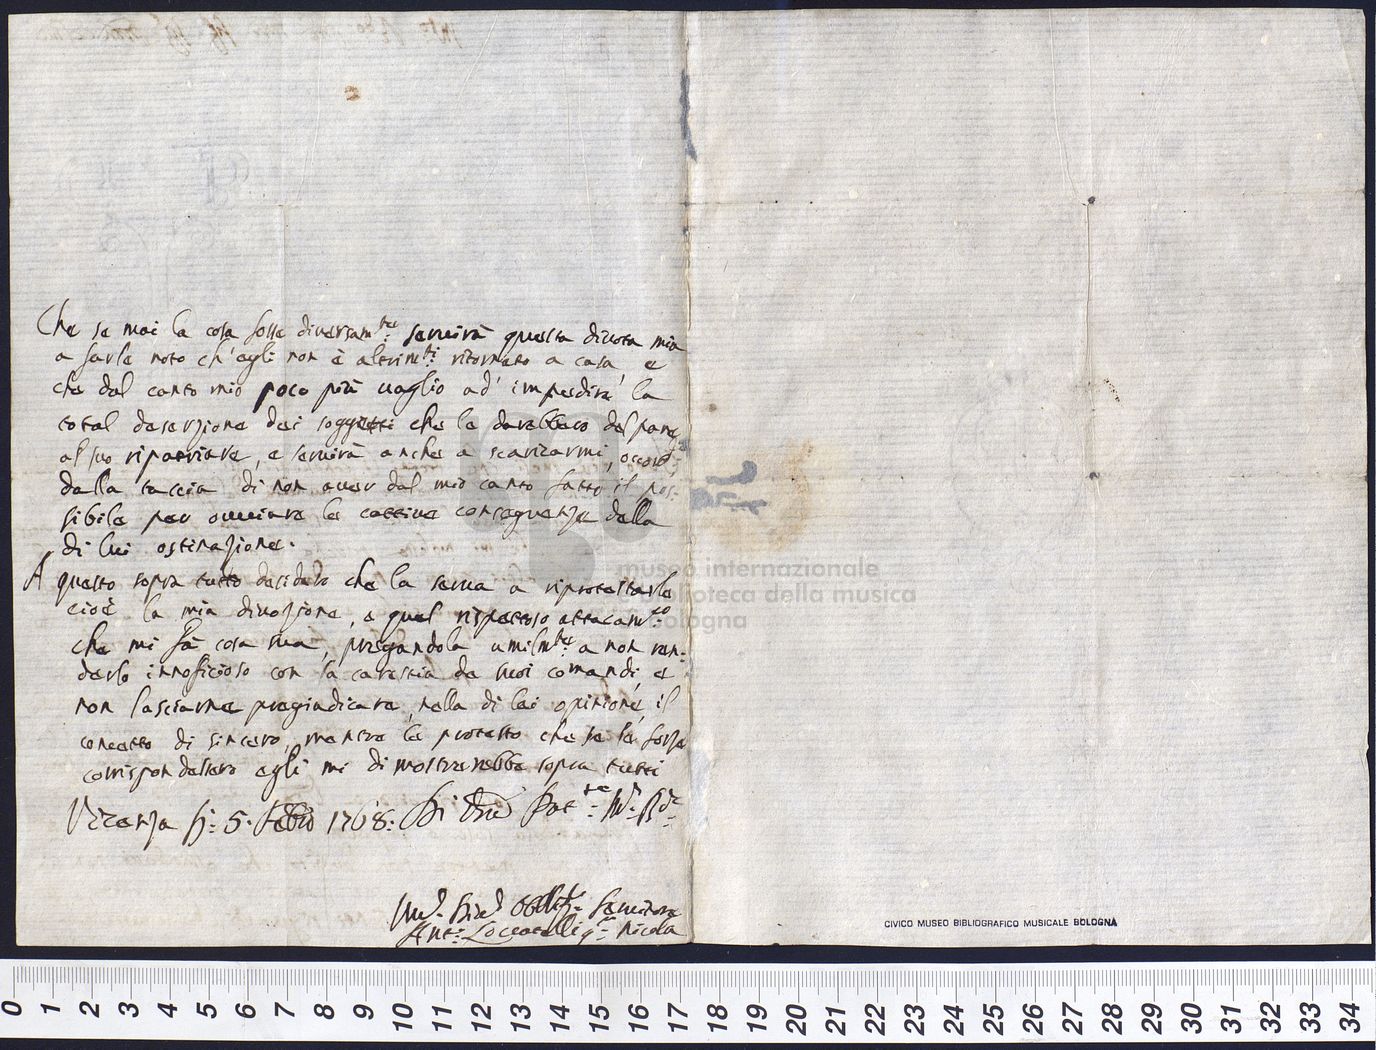 Che se mai la cosa fosse diversam.te servirà questa divota mia
a farle noto ch'egli non è altrim.ti ritornato a casa, e
che dal canto mio poco più vaglio ad' impedire la
total deserzione dei soggetti che le darebbero del pane
al suo ripatriare, e servirà anche a scaricarmi,
dalla taccia di non aver dal mio canto fatto il pos-
sibile per ovviare le cattive conseguenze della
di lui ostinazione.
A questo sopra tutto desidero che la serva a riprotestarle
cioè la mia divozione, e quel rispettoso attacam.to
che mi fà cosa sua, pregandola umilm.te a non ren-
derlo innoficioso con la carestia de suoi comandi, e
non lasciarne pregiudicare, nella di lei opinione, il
concetto di sincero, mentre le protesto che se le forze
corrispondessero egli mi dimostrerebbe sopra tutti
Vicenza li: 5. Febb.o 1768: Di V.ra Pat.tà M.to R.da
Um.o Dev.o Obblig.mo Servitore
Ant.o Loccatelli q.m Nicola
museo internazionale
e biblioteca della musica
bologna
CIVICO MUSEO BIBLIOGRAFICO MUSICALE BOLOGNA
0 1 2 3 4 5 6 7 8 9 10 11 12 13 14 15 16 17 18 19 20 21 22 23 24 25 26 27 28 29 30 31 32 33 34